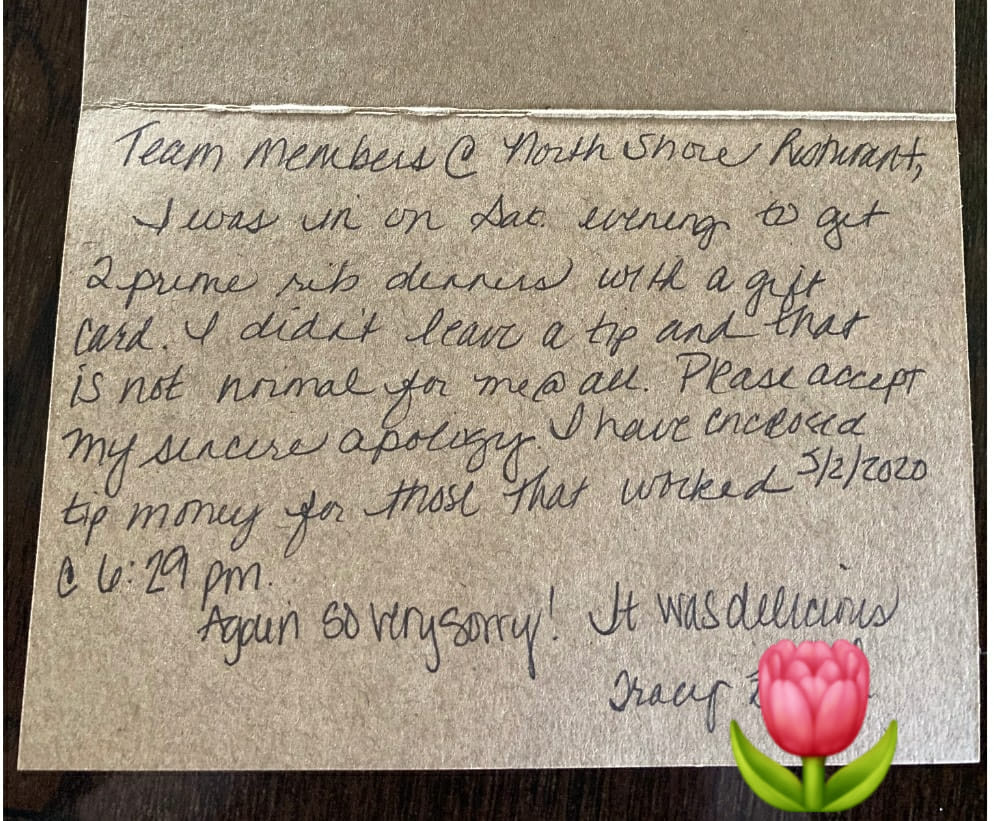 Team Members @ North Shore Risturant,
I was in on Sat. evening to get
2 prime rib dinners with a gift
card. I didn't leave a tip and that
is not normal for me @ all. Please accept
my sincere apology. I have enclosed
tip money for those that worked 5/2/2020
@ 6:29 pm.
Again so very sorry! It was delicious
Tracy